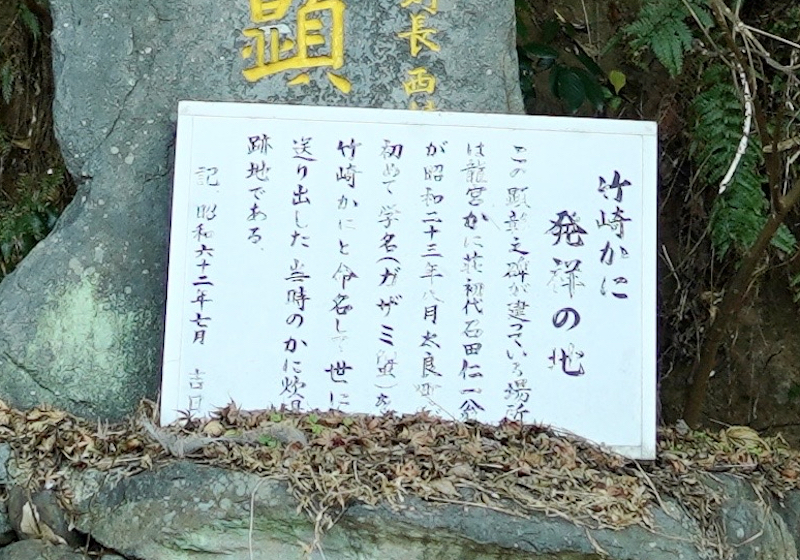 竹崎かに
発祥の地
この顕彰之碑が建っている場所
は龍宮かに荘初代石田仁一翁
が昭和二十三年八月太良町
初めて学名(ガザミ蟹)を
竹崎かにと命名して世に
送り出した当時のかに炊場
跡地である
記 昭和六十二年七月 吉日
顕
町長西